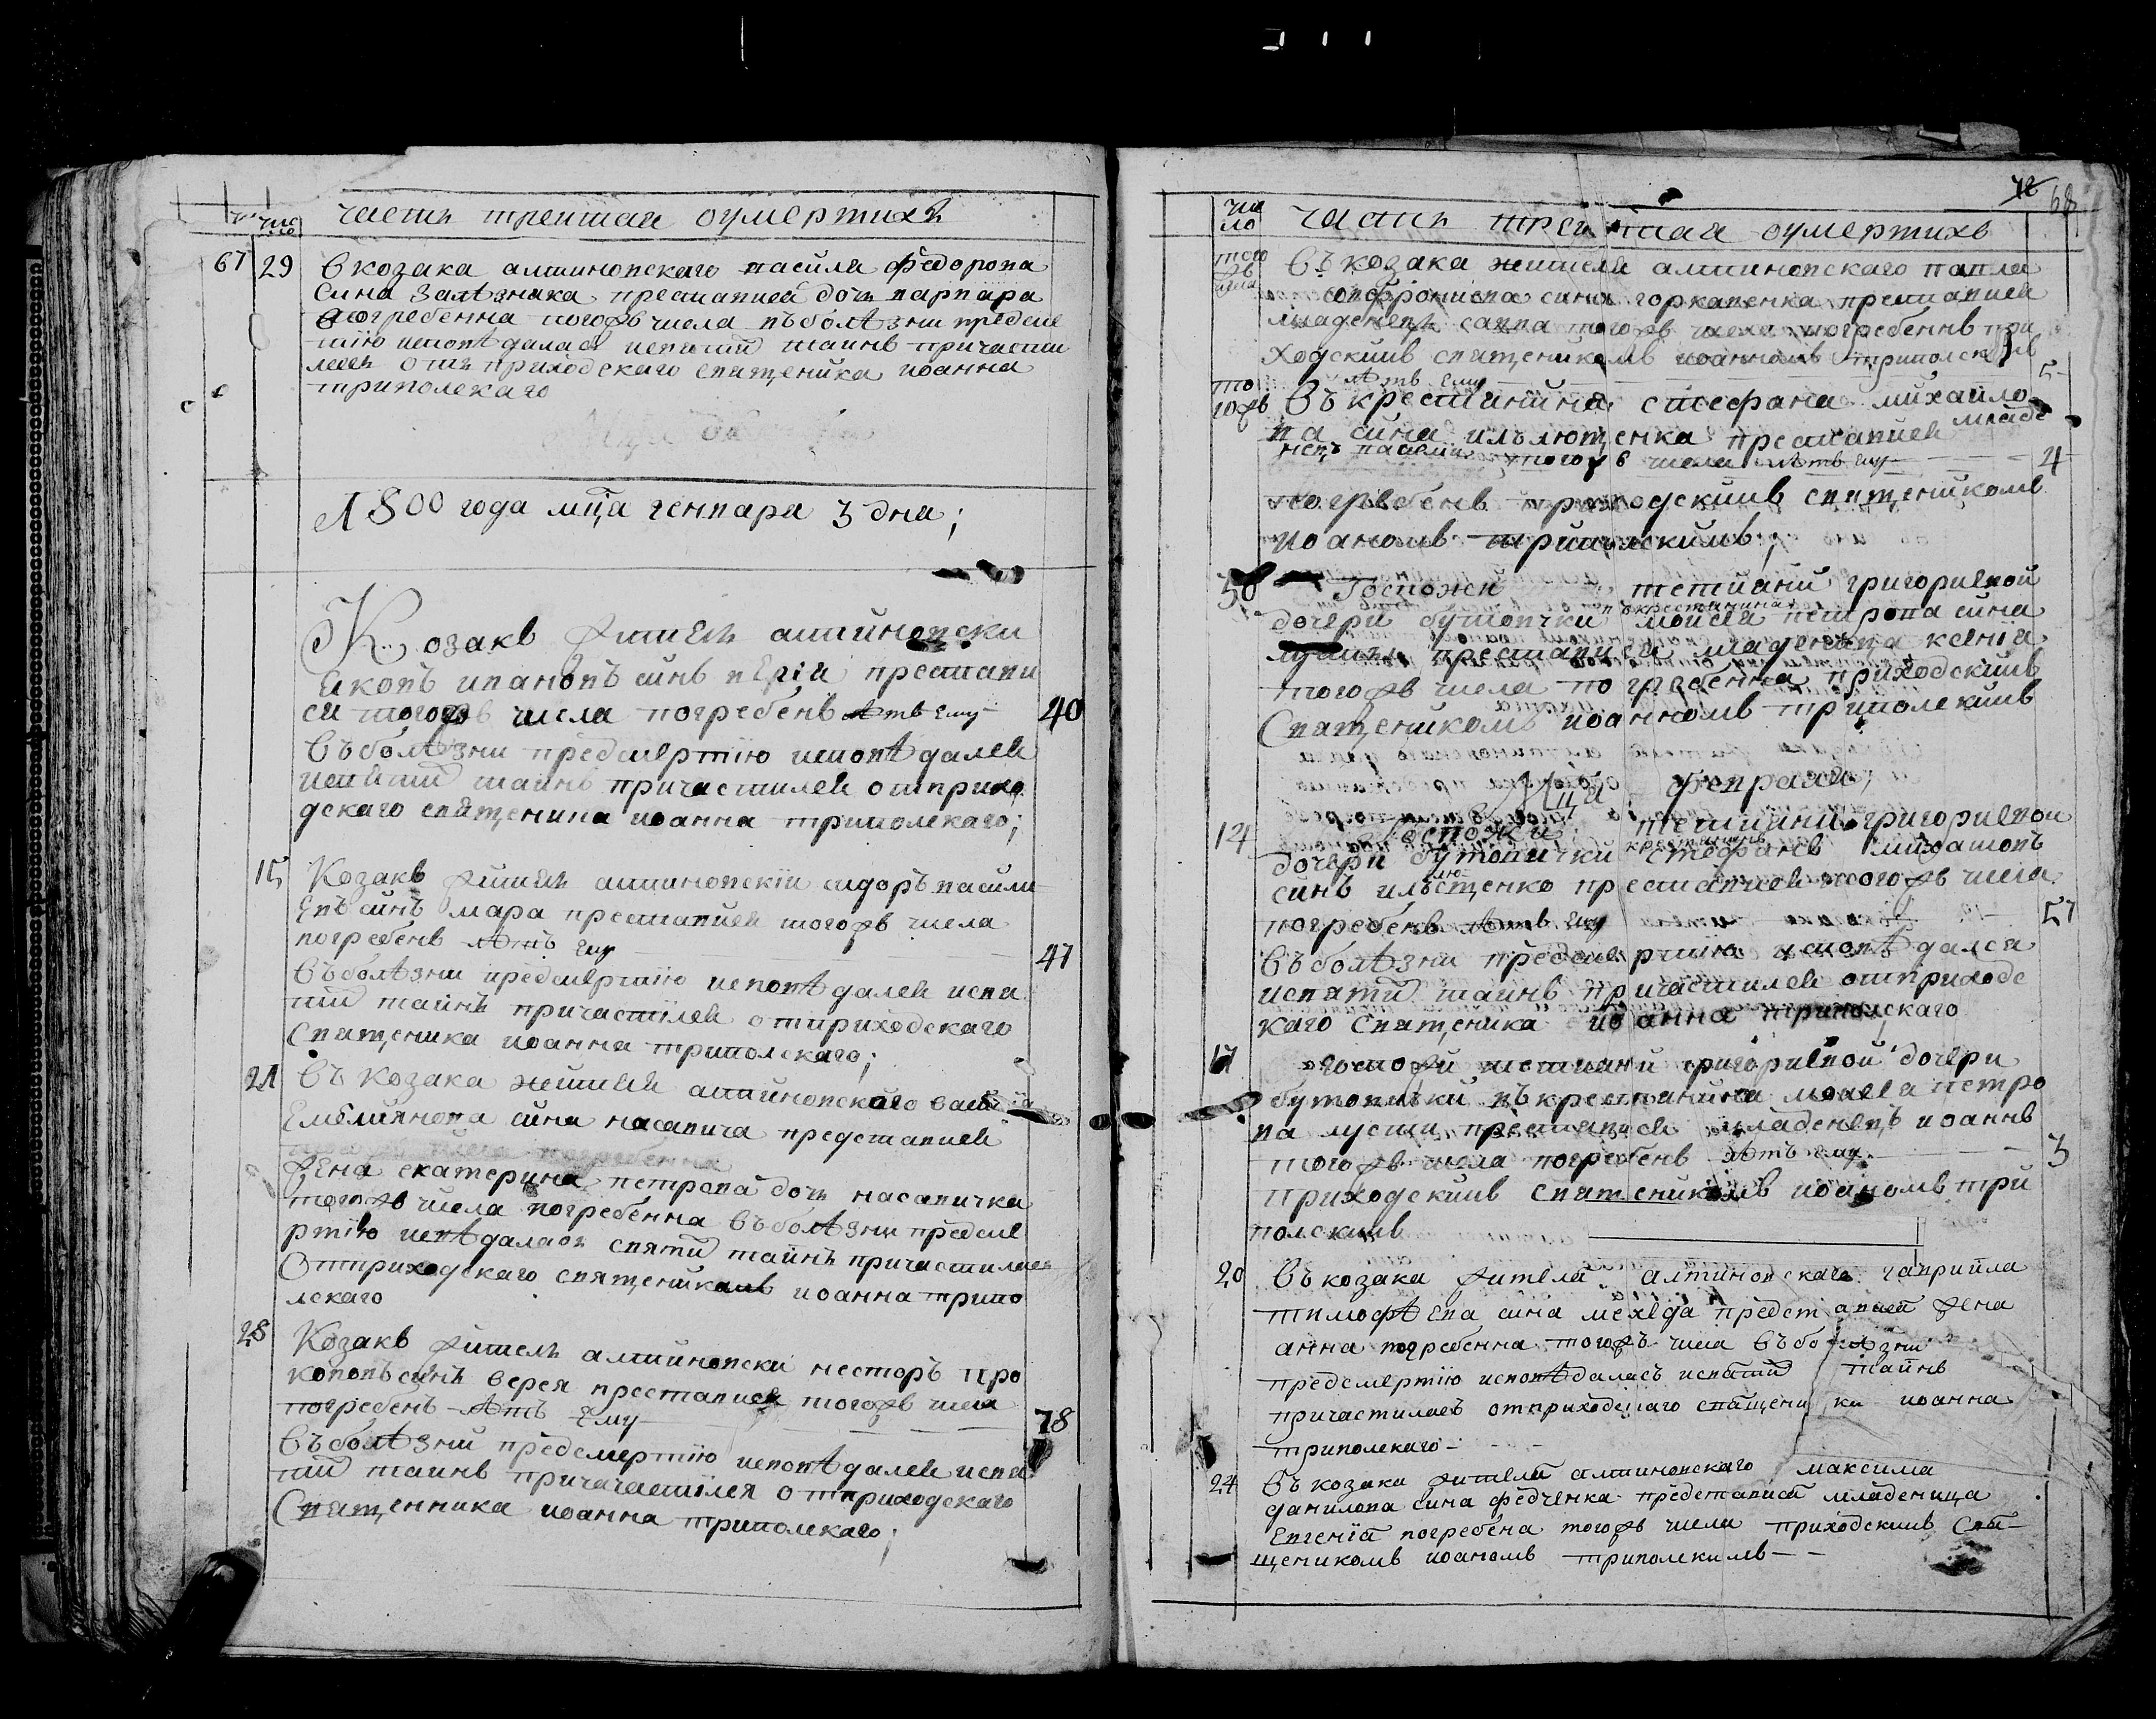 число часть третая оумертихъ
67 29 в козака алтиновскаго василя федорова
сина залѣзнака преставися дочъ варвара
погребенна тогожъ числа въ болѣзни предсме
ртію исповѣдалас исвятии таинъ причасти
лася отъ приходскаго священика иоанна
триполскаго
1800 года мца генвара 3 дна;
Козакъ житель алтиновски
яковъ ивановъ синъ преставы
ся тогожъ числа погребенъ лѣтъ ему 40
въ болѣзни предсмертію исповѣдалея
исвятии таинъ причастилея отприхо
дскаго священика иоанна триполскаго;
15 Козакъ житель алтиновскіи сидоръ васили
евъ синъ мара преставися тогожъ числа
погребенъ лѣтъ ему 47
въ болѣзни предсмертію исповѣдалея исвя
тии таинъ причастілея отприходскаго
священика иоанна триполскаго;
21 Въ козака жителя алтиновскаго
емелиянова сина насавича представися
жена екатерина петрова дочъ насавичка
тогожъ числа погребенна въ болѣзни предсме
ртію исвѣдалась святии таинъ причастилася
отприходскаго священикамъ иоанна трипо
лскаго
28 Козакъ житель алтиновски несторъ про
коповъ синъ верея преставися тогожъ числа
погребенъ лѣтъ ему 78
въ болѣзни предсмертію исповѣдалея исвя
тии таинъ причачастілея отприходскаго
священника иоанна триполскаго;
72 68
число часть третая оумертихъ
тогожъ числа Въ козака жителя алтиновскаго павла
софронива сина горкавенка преставися
младенецъ савва тогожъ числа погребеннъ при
ходскимъ священикомъ иоанномъ триполскимъ
лѣтъ ему 5
тогожъ Въ крестянина стефана михаило
ва сина илълющенка преставися младе
нецъ василъ тогожъ числа лѣтъ ему 4
погребенъ приходскимъ священикомъ
иоаномъ триполскимъ;
30 Госпожи тетияни григориевой
дочери бутовички въ крестянина моисея петрова сина
преставися младеница ксенія
тогожъ числа погребенна приходскимъ
священикомъ иоанномъ триполскимъ
Мца февраля;
14 Госпожи тетияни григориевои
дочери бутовички крестянинъ стефанъ михаиловъ
синъ илълющенко преставися тогожъ числа
погребенъ лѣтъ ему 51
въ болѣзни предсмертию исповѣдалея
исвятии таинъ причастилея отприходс
каго священика иоанна триполскаго
17 госпожи тетияни григориевой дочери
бутовички въ крестянина моисея петро
ва лусти преставися младенецъ иоаннъ
тогожъ числа погребенъ лѣтъ ему 3
приходскимъ священикомъ иоаномъ три
полскимъ
20 Въ козака жителя алтиновскаго гаврийла
тимофѣева сина мехеда представися жена
анна погребенна тогожъ числа въ болѣзни
предсмертію исповѣдалась исвятии таинъ
причастилась отприходскаго священика иоанна
триполскаго
24 Въ козака жителя алтиновскаго максима
данилова сина федченка представися младеница
евгеніа погребена тогожъ числа приходскимъ свя-
щеникомъ иоаномъ триполскимъ